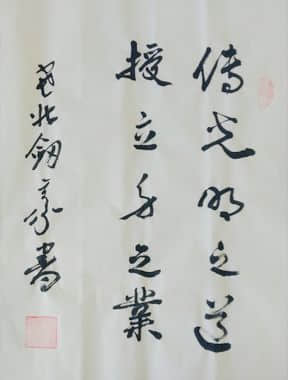 傳光明之道
授立身之業
北劍書